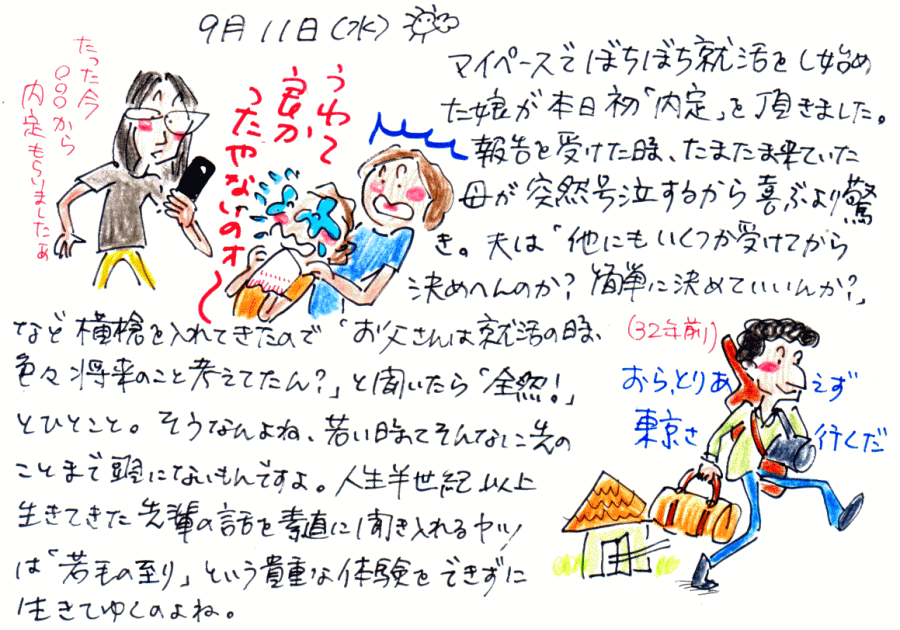 9月11日(水)
たった今
○○○から
内定もらいましたぁ
うわ〜
良か
ったやないのォ〜
マイペースでぼちぼち就活をし始め
た娘が本日初「内定」を頂きました。
報告を受けた時、たまたま来ていた
母が突然号泣するから喜ぶより驚
き。夫は「他にもいくつか受けてから
決めへんのか?簡単に決めていいんか?」
など横槍を入れてきたので「お父さんは就活の時、
色々将来のこと考えてたん?」と聞いたら「全然!」
とひとこと。そうなんよね、若い時ってそんなに先の
ことまで頭にないもんですよ。人生半世紀以上
生きてきた先輩の話を素直に聞き入れるヤツ
は「若毛の至り」という貴重な体験をできずに
生きてゆくのよね。
(32年前)
おら、とりあえず
東京さ行くだ